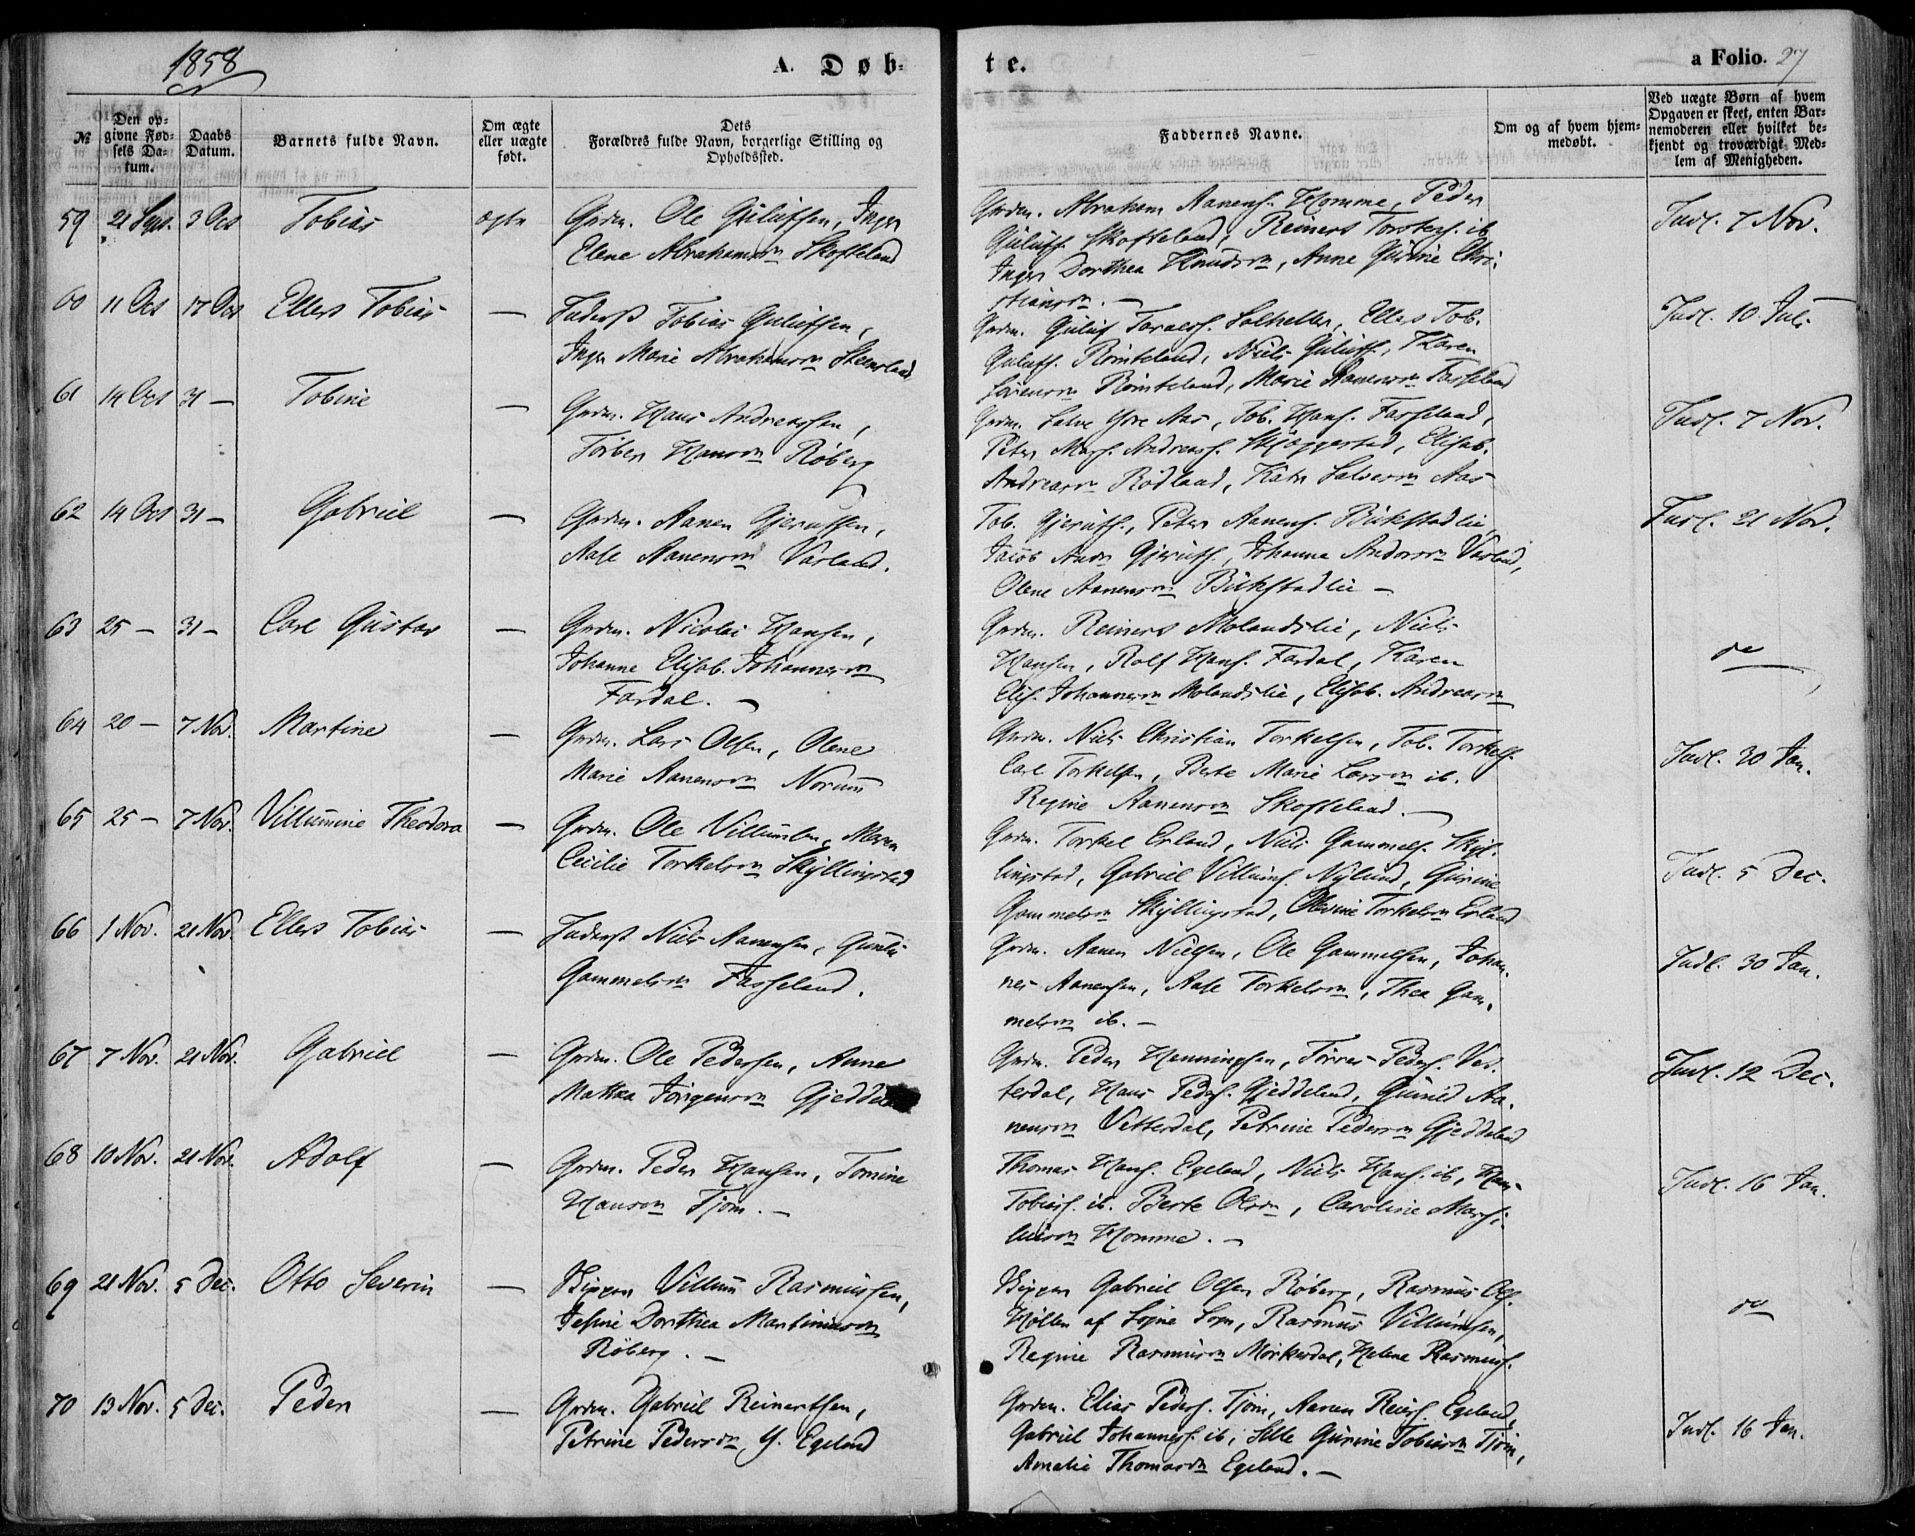 1858
A. Døb-
te.
a Folio. 27
№
Den op-
givne Fød-
sels Da-
tum.
Daabs
Datum.
Barnets fulde Navn.
Om ægte
eller uægte
født.
Dets
Forældres fulde Navn, borgerlige Stilling og
Opholdssted.
Faddernes Navne.
Om og af hvem hjem-
medøbt.
Ved uægte Børn af hvem
Opgaven er skeet, enten Bar-
nemoderen eller hvilket be-
kjendt og troværdigt Med-
lem af Menigheden.
59 21 Sept. 3 Oct Tobias ægte Grdm. Ole Guluffsen, Inger
Elene Abrahamsdn Skofteland
Grdm. Abraham Aanens. Homme, Peder
Guluffs. Skofteland, Reinert Torstens. ib
Inger Dorthea Knudsdn, Anne Gurine Chri-
stiansdn. —
Indl. 7 Nov.
60 11 Oct 17 Oct Ellert Tobias — Inderst Tobias Guluffsen,
Inger Marie Abrahamsdn Steensland
Grdm. Guluf Taralds. Solhellen, Ellert Tob.
Guluffs. Römteland, Niels Guluffs., Karen
Sörensdn Römteland, Marie Aanensdn Fasseland
Indl. 10 Juli
61 14 Oct 31 — Tobine — Grdm. Hans Andreassen,
Torber Hansdn Röberg
Grdm. Salve Aas, Tob. Hans. Fasseland,
Peter Andreass. Skjeggestad, Elisab.
Andreasdn Rödland, Salvesdn Aas
Indl. 7 Nov.
62 14 Oct 31 — Gabriel — Grdm. Aanen Gjerulfsen,
Aase Aanensdn Valand.
Tob. Gjerulfs., Peter Aanens. Bukstadlie,
Jacob Gjerulfs., Johanne Valand,
Olene Aanensdn Bukstadlie —
Indl. 21 Nov.
63 25 — 31 — Carl Gustav — Grdm. Nicolai Hansen,
Johanne Elisab. Johannesdn
Fardal. —
Grdm. Reinert Molandslie, Niels
Hansen, Rolf Hans. Fardal, Karen
Elis. Johannesdn Molandslie, Elisab. Andreasdn
do
64 20 — 7 Nov. Martine — Grdm. Lars Olsen, Olene
Marie Aanensdn Norum
Grdm. Niels Christian Torkelsen, Tob. Torkels.
Carl Torkelsen, Berte Marie Larsdn ib.
Regine Aanensdn Skofteland. —
Indl. 30 Jan.
65 25 — 7 Nov. Villumine Theodora — Grdm. Ole Villumsen, Maren
Cecilie Torkelsdn Skyllingstad
Grdm. Torkel Erland, Niels Gammels. Skyl-
lingstad, Gabriel Villums. Nylund, Gurine
Gammelsdn Skyllingstad, Olevine Torkelsdn Erland
Indl. 5 Dec.
66 1 Nov. 21 Nov. Ellert Tobias — Inderst Niels Aanensen, Gunild
Gammelsdn Fasseland.
Grdm. Aanen Nielsen, Ole Gammelsen, Johan-
nes Aanensen, Aase Torkelsdn, Thea Gam-
melsdn ib. —
Indl. 30 Jan.
67 7 Nov. 21 Nov. Gabriel — Grdm. Ole Pedersen, Anne
Mathea Jörgensdn
Grdm. Peder Henningsen, Törres Peders. Vet-
terdal, Hans Peders. Gjeddeland, Gunild Aa-
nensdn Vetterdal, Petrine Pedersdn Gjeddeland
Indl. 12 Dec.
68 10 Nov. 21 Nov. Adolf — Grdm. Peder Hansen, Tomine
Hansdn Tjom. —
Thomas Hans. Egeland, Niels Hans. ib, Hans
Tobias. ib. Berte Olsdn, Caroline
Homme. —
Indl. 16 Jan.
69 21 Nov. 5 Dec. Otto Severin — Skipper Villum Rasmussen,
Jesine Dorthea Martiniusdn
Röberg. —
Skipper Gabriel Olsen Röberg, Rasmus Ols.
Höllen af Sögne Sogn, Rasmus Villumsen,
Regine Rasmusdn Mörkedal, Helene Rasmusd.
do
70 13 Nov. 5 Dec. Peder — Grdm. Gabriel Reinertsen,
Petrine Pedersdn Y. Egeland
Grdm. Elias Peders. Tjom, Aanen Reiers. Egeland,
Gabriel Johanness. ib, Gurine Tobiasdn Tjom,
Amalie Thomasdn Egeland. —
Indl. 16 Jan.